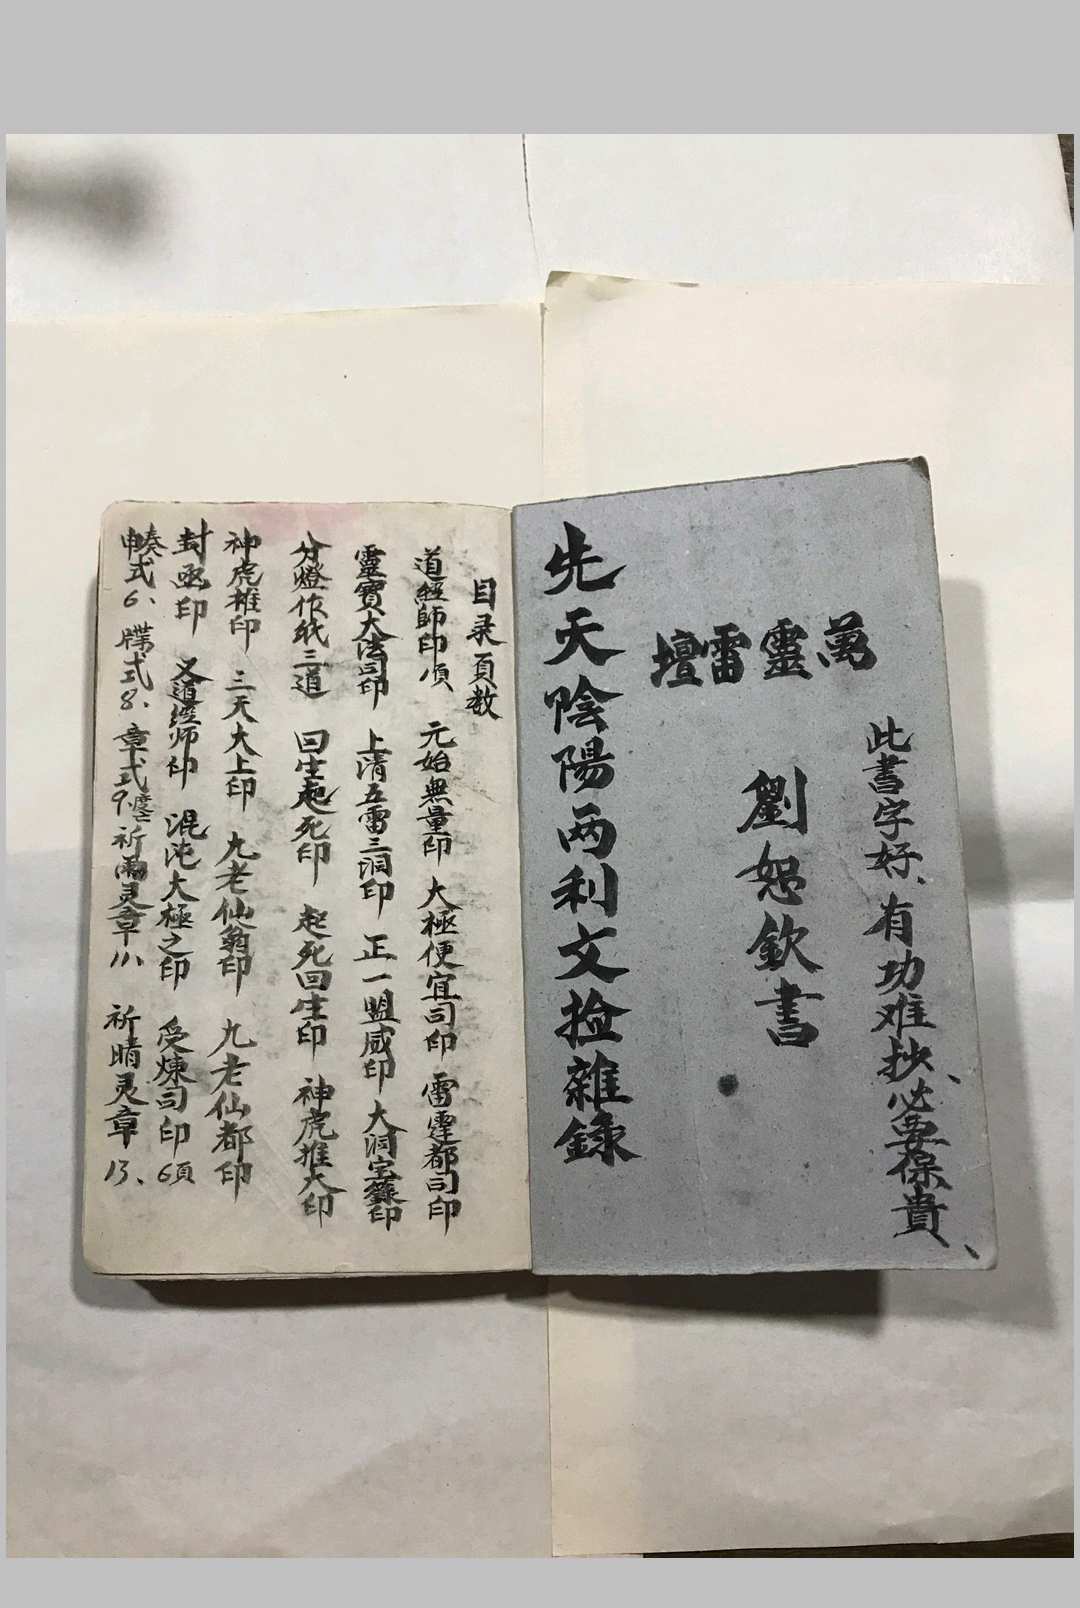 此書字好、有功难抄、必要保貴、
萬靈雷壇
劉恕欽書
先天陰陽两利文捡雜錄
目录頁数
道經師印項 元始無量印 大極便宜司印 雷霆都司印
靈寶大法司印 上清五雷三洞印 正一盟威印 大洞宝籙印
分燈作紙三道 回生起死印 起死回生印 神虎推大印
神虎推印 三天大上印 九老仙翁印 九老仙都印
封函印 又道經师印 混沌大極之印 受煉司印 6頁
式6、牒式8、章式9、祈雨灵章11、 祈晴灵章13、